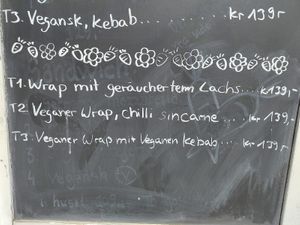 T3. Vegansk, kebab......... kr 139,-
T1. Wrap mit geräuchertem Lachs... k 139,-
T2 Veganer Wrap, chilli sincarne ... kr 139,-
T3. Veganer Wrap mit Veganen kebab... kr 139,-